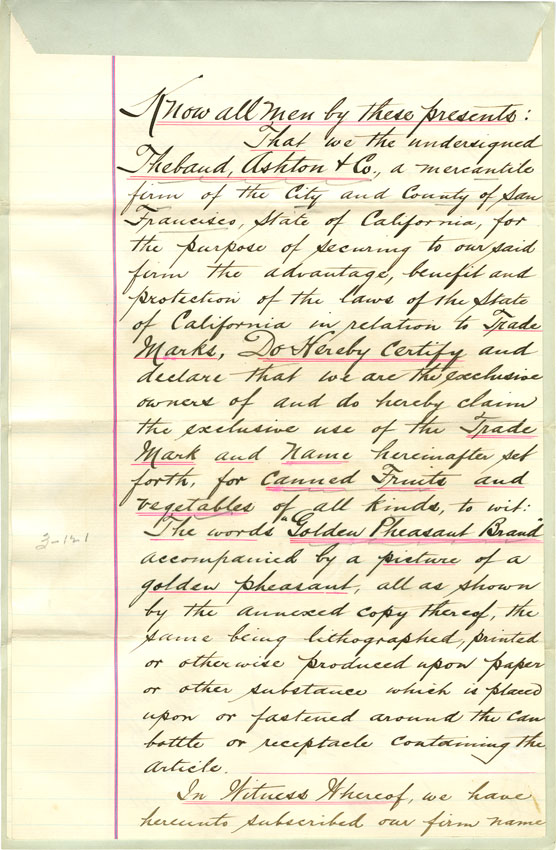 Know all men by these presents:
That we the undersigned
Thebaud, Ashton & Co., a mercantile
firm of the City and County of San
Francisco, State of California, for
the purpose of securing to our said
firm the advantage, benefit and
protection of the laws of the State
of California in relation to Trade
Marks, Do Hereby Certify and
declare that we are the exclusive
owners of and do hereby claim
the exclusive use of the Trade
Mark and Name hereinafter set
forth, for canned Fruits and
vegetables of all kinds, to wit:
The words "Golden Pheasant Brand"
accompanied by a picture of a
golden pheasant, all as shown
by the annexed copy thereof, the
same being lithographed, printed
or otherwise produced upon paper
or other substance which is placed
upon or fastened around the can
bottle or receptacle containing the
article.
In Witness Whereof, we have
hereunto subscribed our firm name